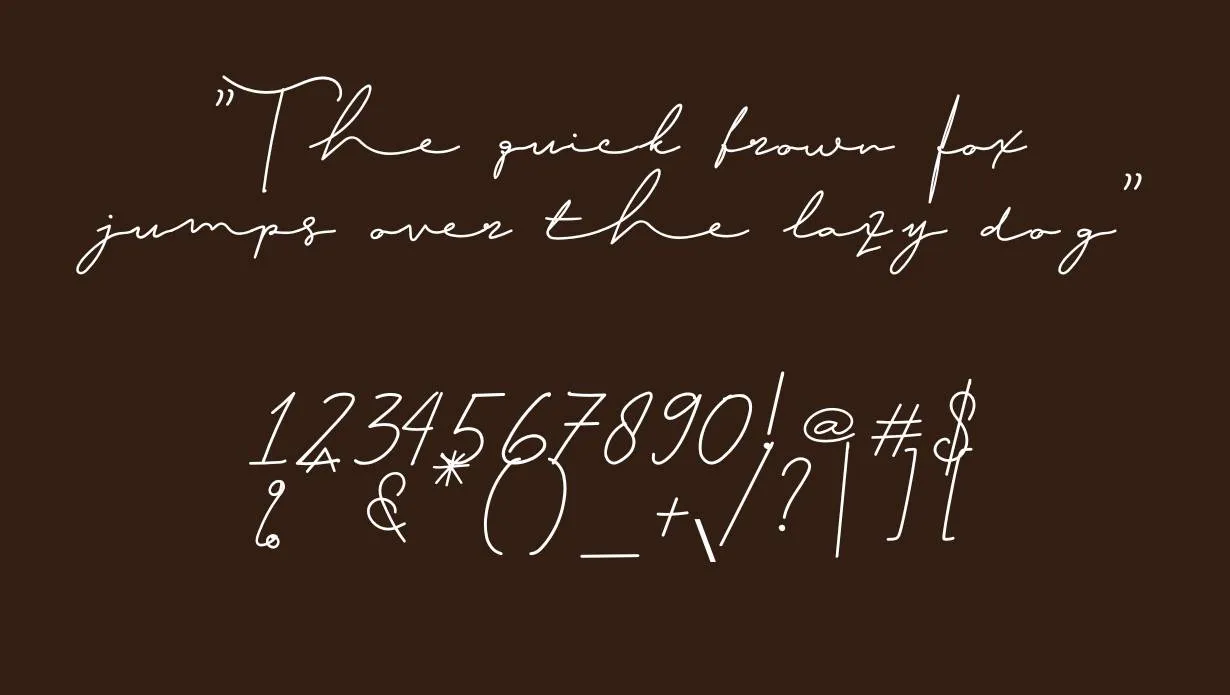 ”The quick brown fox
jumps over the lazy dog”
1234567890!@#$
%^&*()_+\/?|][